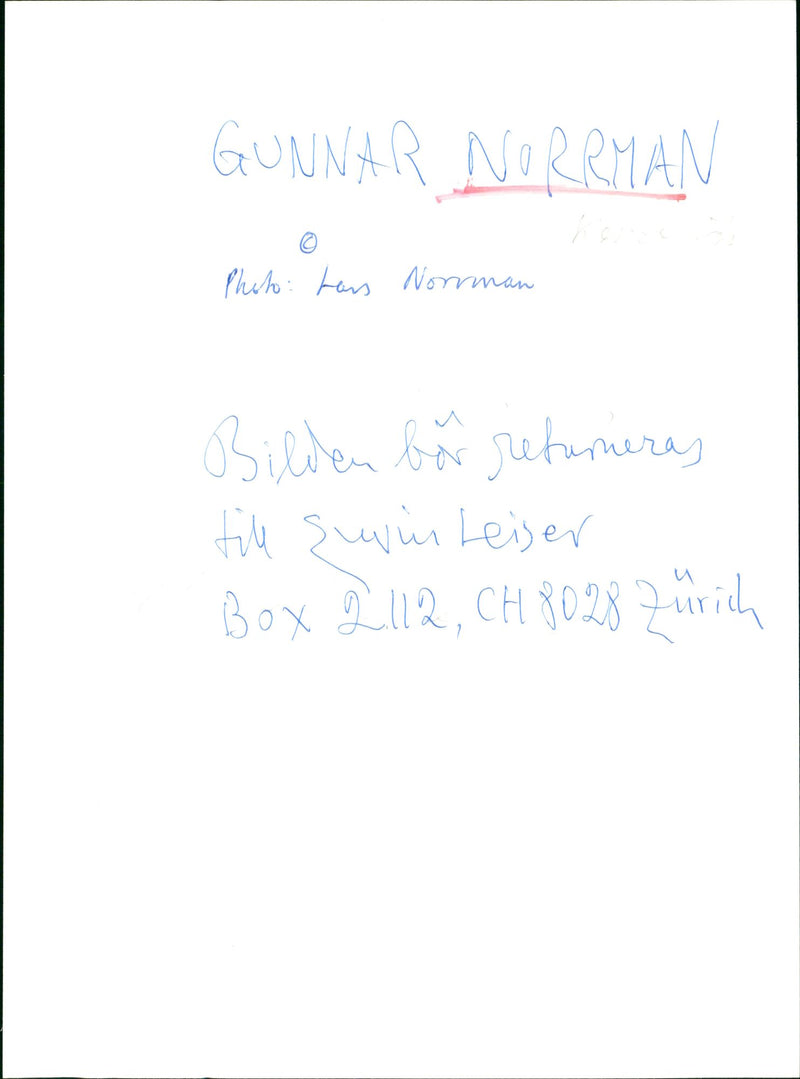 GUNNAR NORRMAN
©
Photo: Lars Norrman
Bilden bör returneras
till Erwin Leiser
Box 2112, CH 8028 Zürich